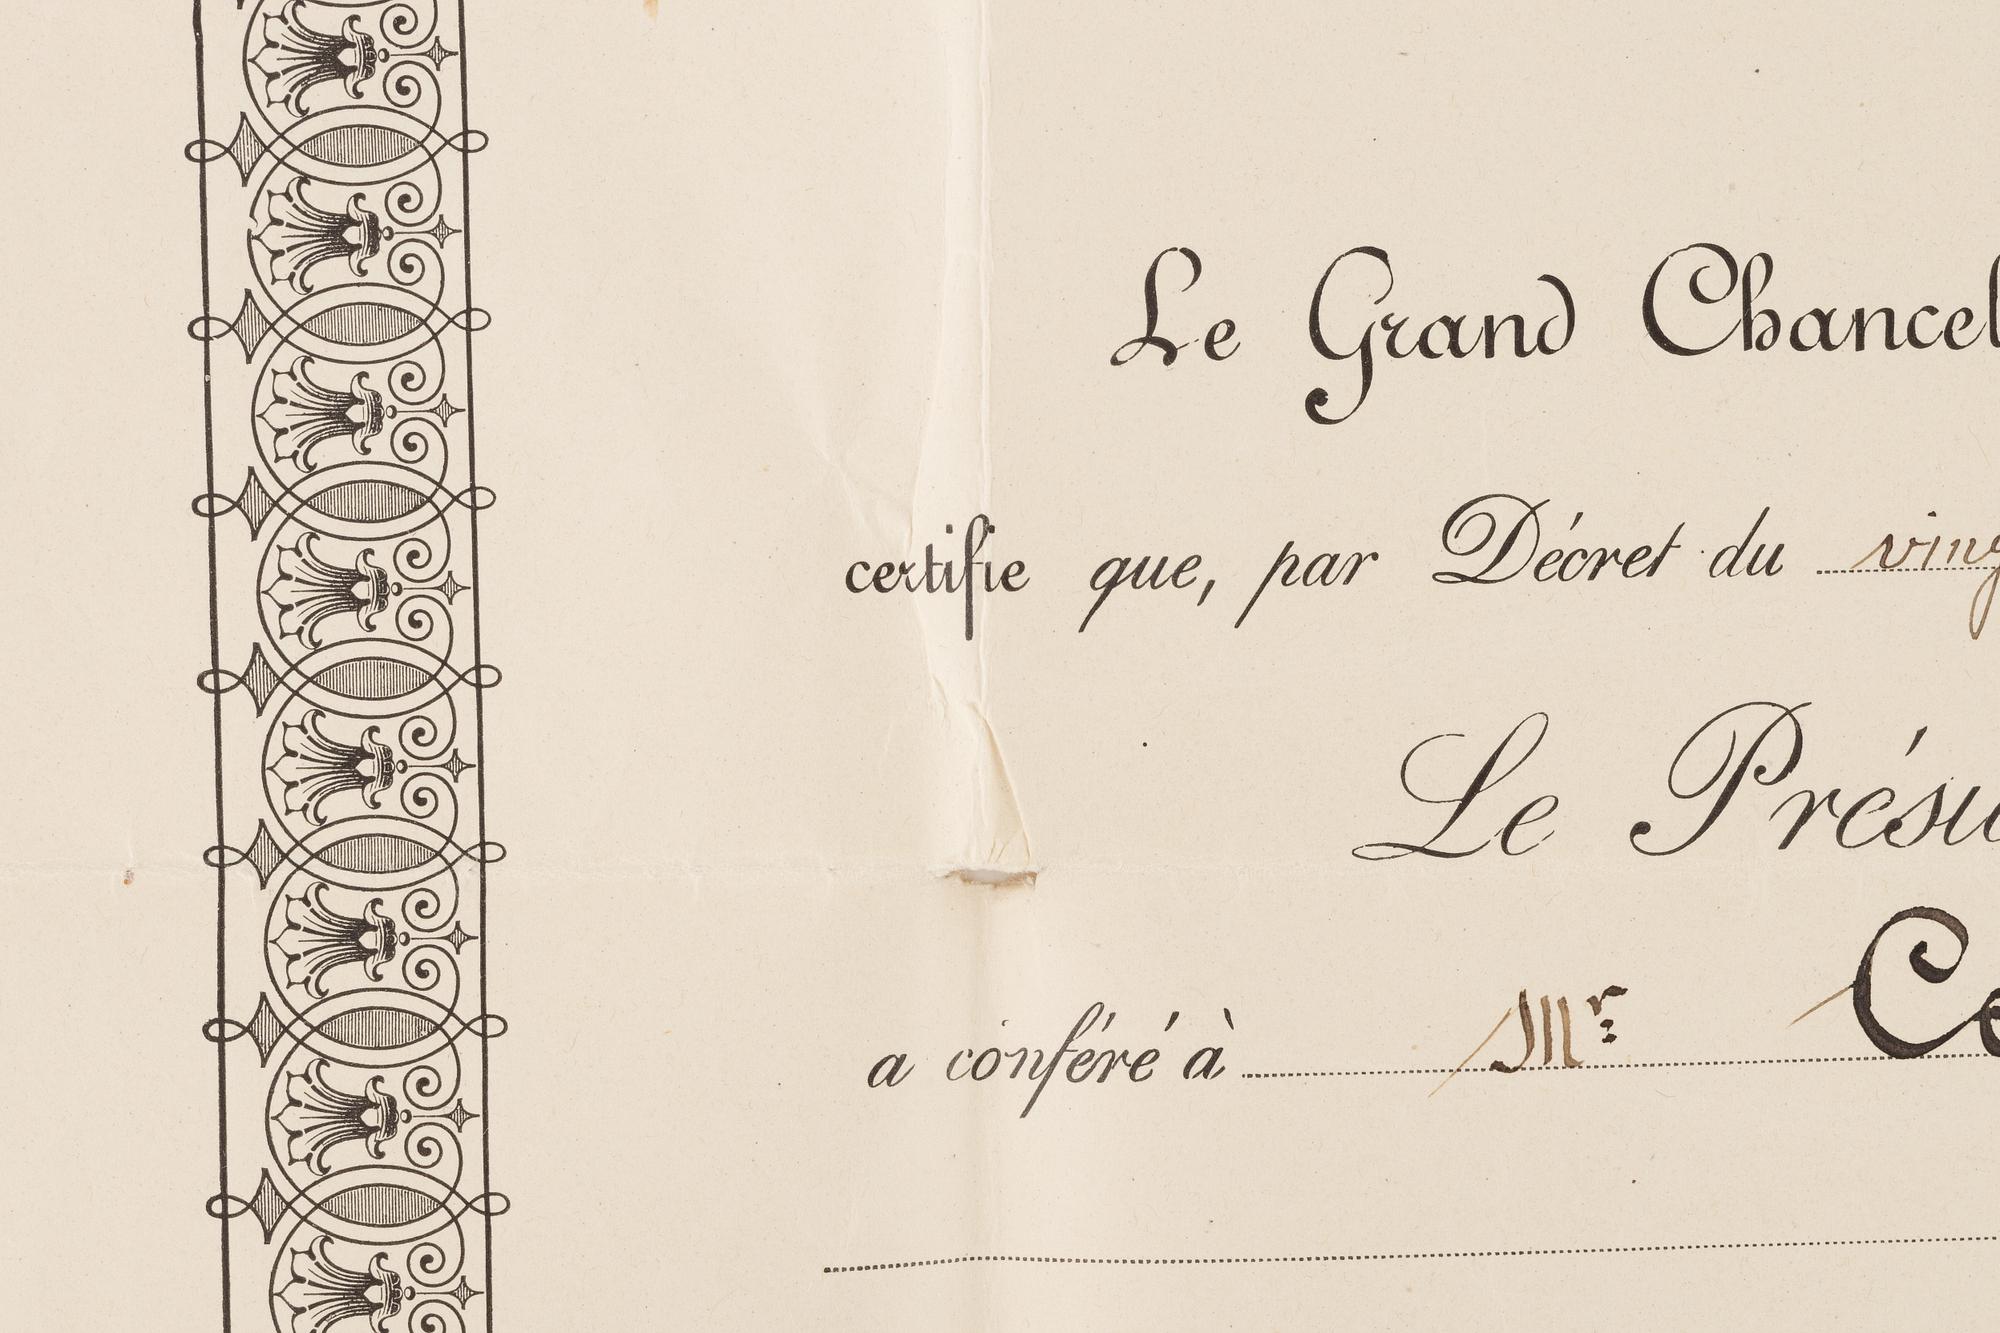 Le Grand Chancel
certifie que, par Décret du ving
Le Prési
a conféré à Mr Ce